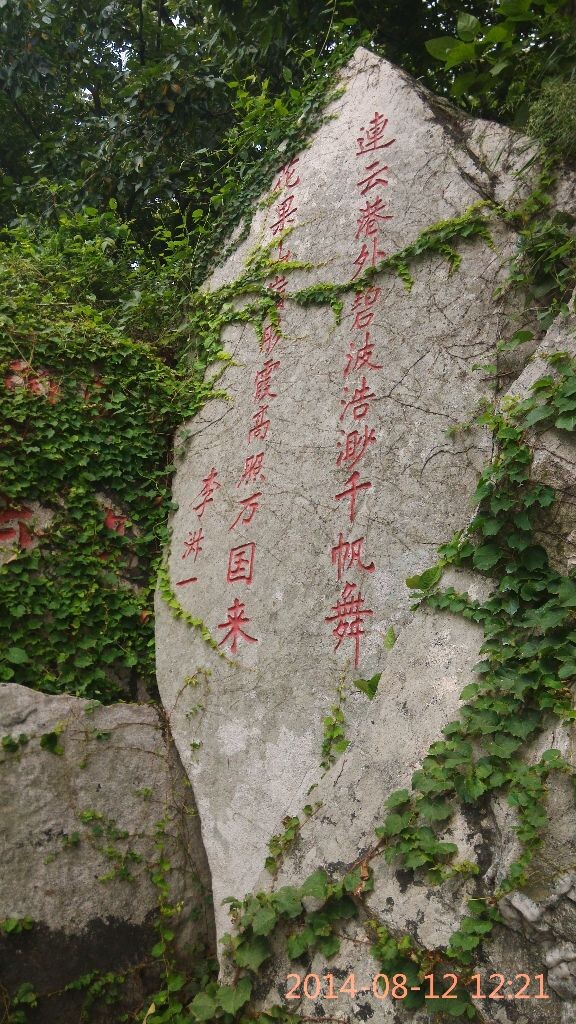 連云港外碧波浩渺千帆舞
花果山岩彤霞高照万国来
李洪一
2014-08-12 12:21